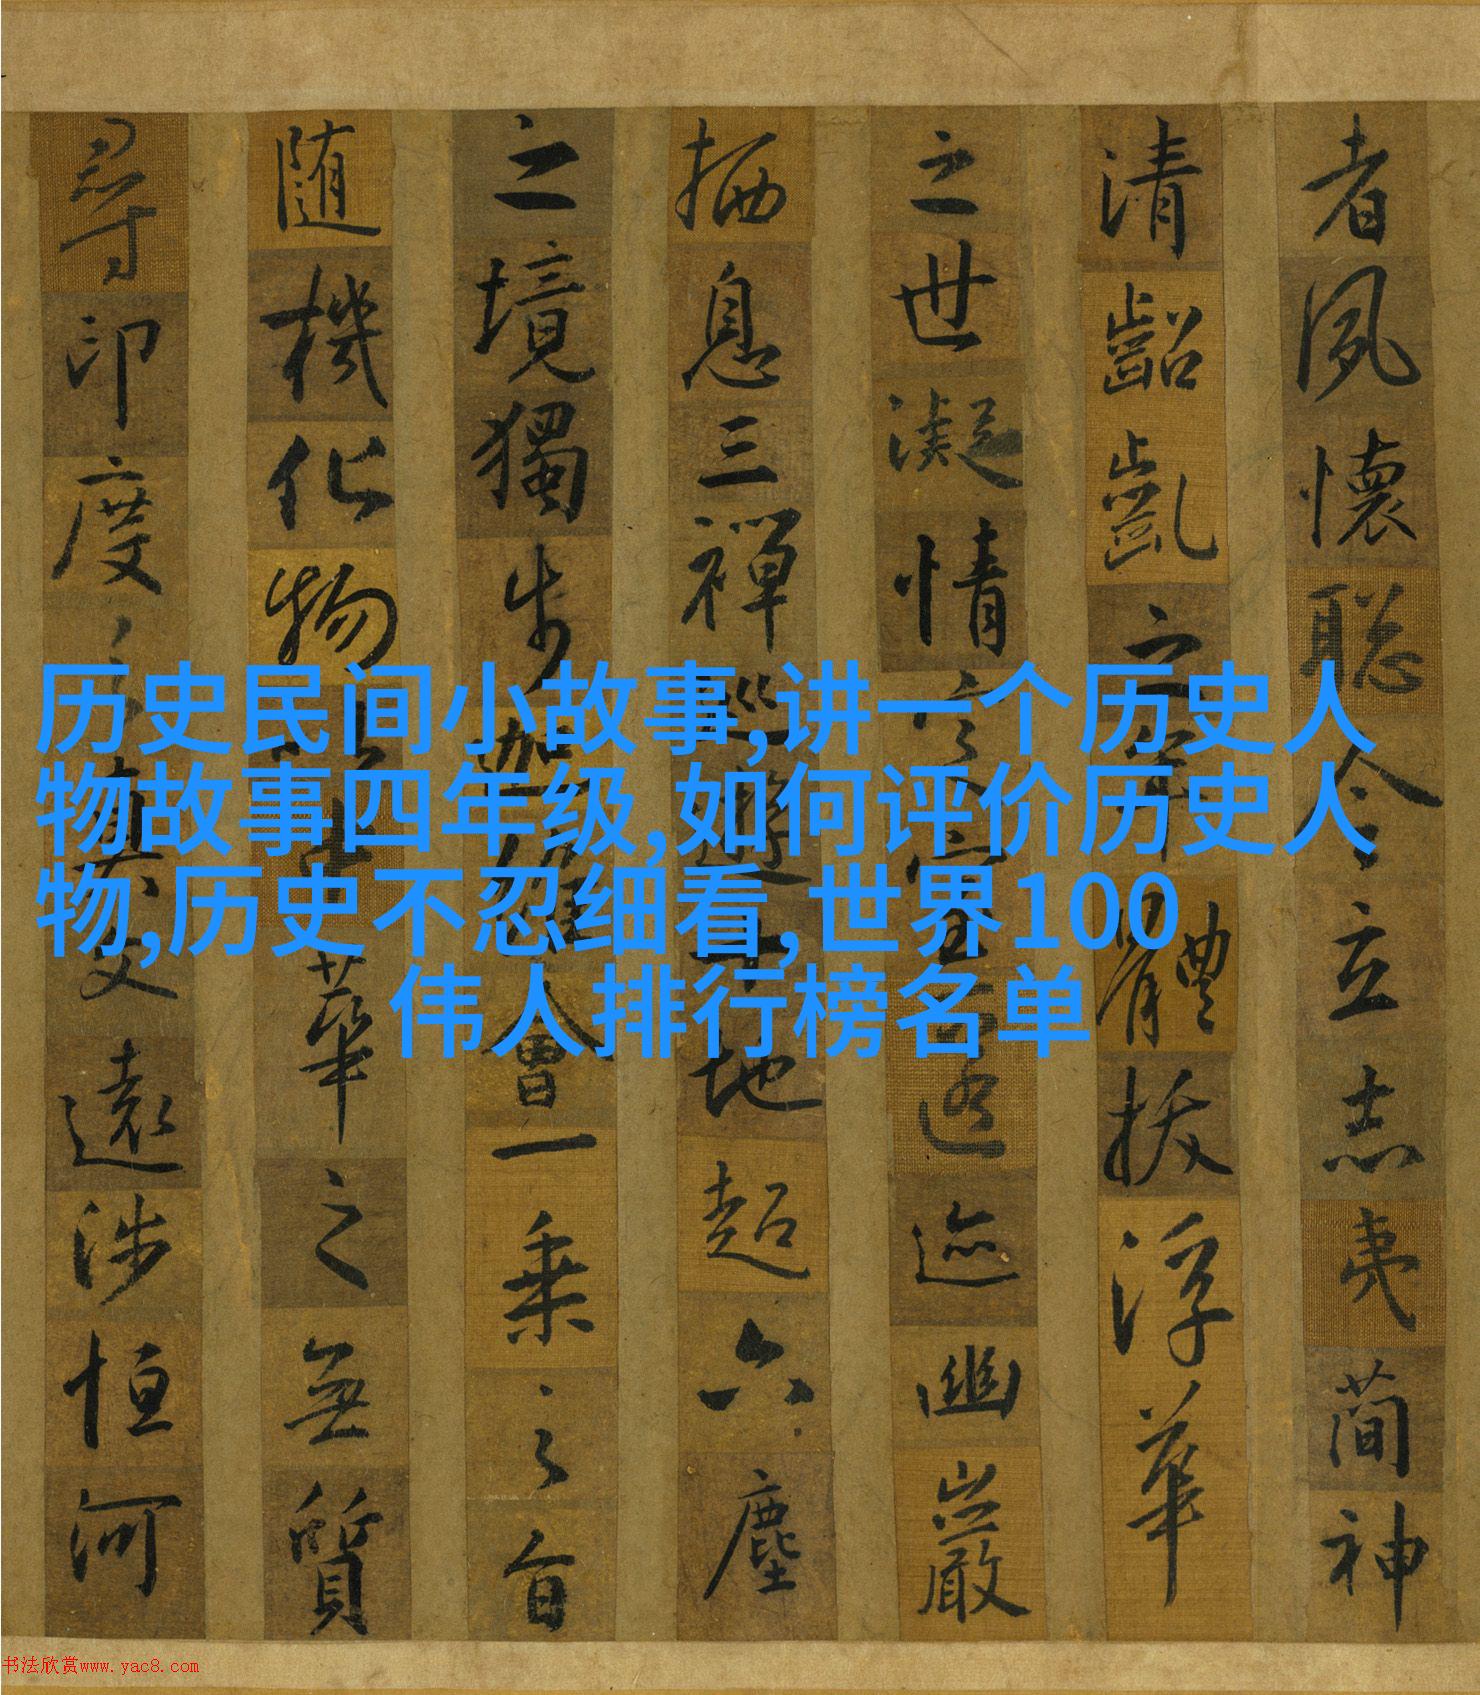 者夙懷聪令立志夷簡神
清齠齔之年體拔浮華
之世凝情定室匿迹幽巖
栖息三禪巡遊十地超六塵
之境獨步迦維會一乘之旨
随機化物以中華之無質
尋印度之真文遠涉恒河
历史民间小故事,讲一个历史人
物故事四年级,如何评价历史人
物,历史不忍细看,世界100
伟人排行榜名单
书法欣赏www.yac8.com